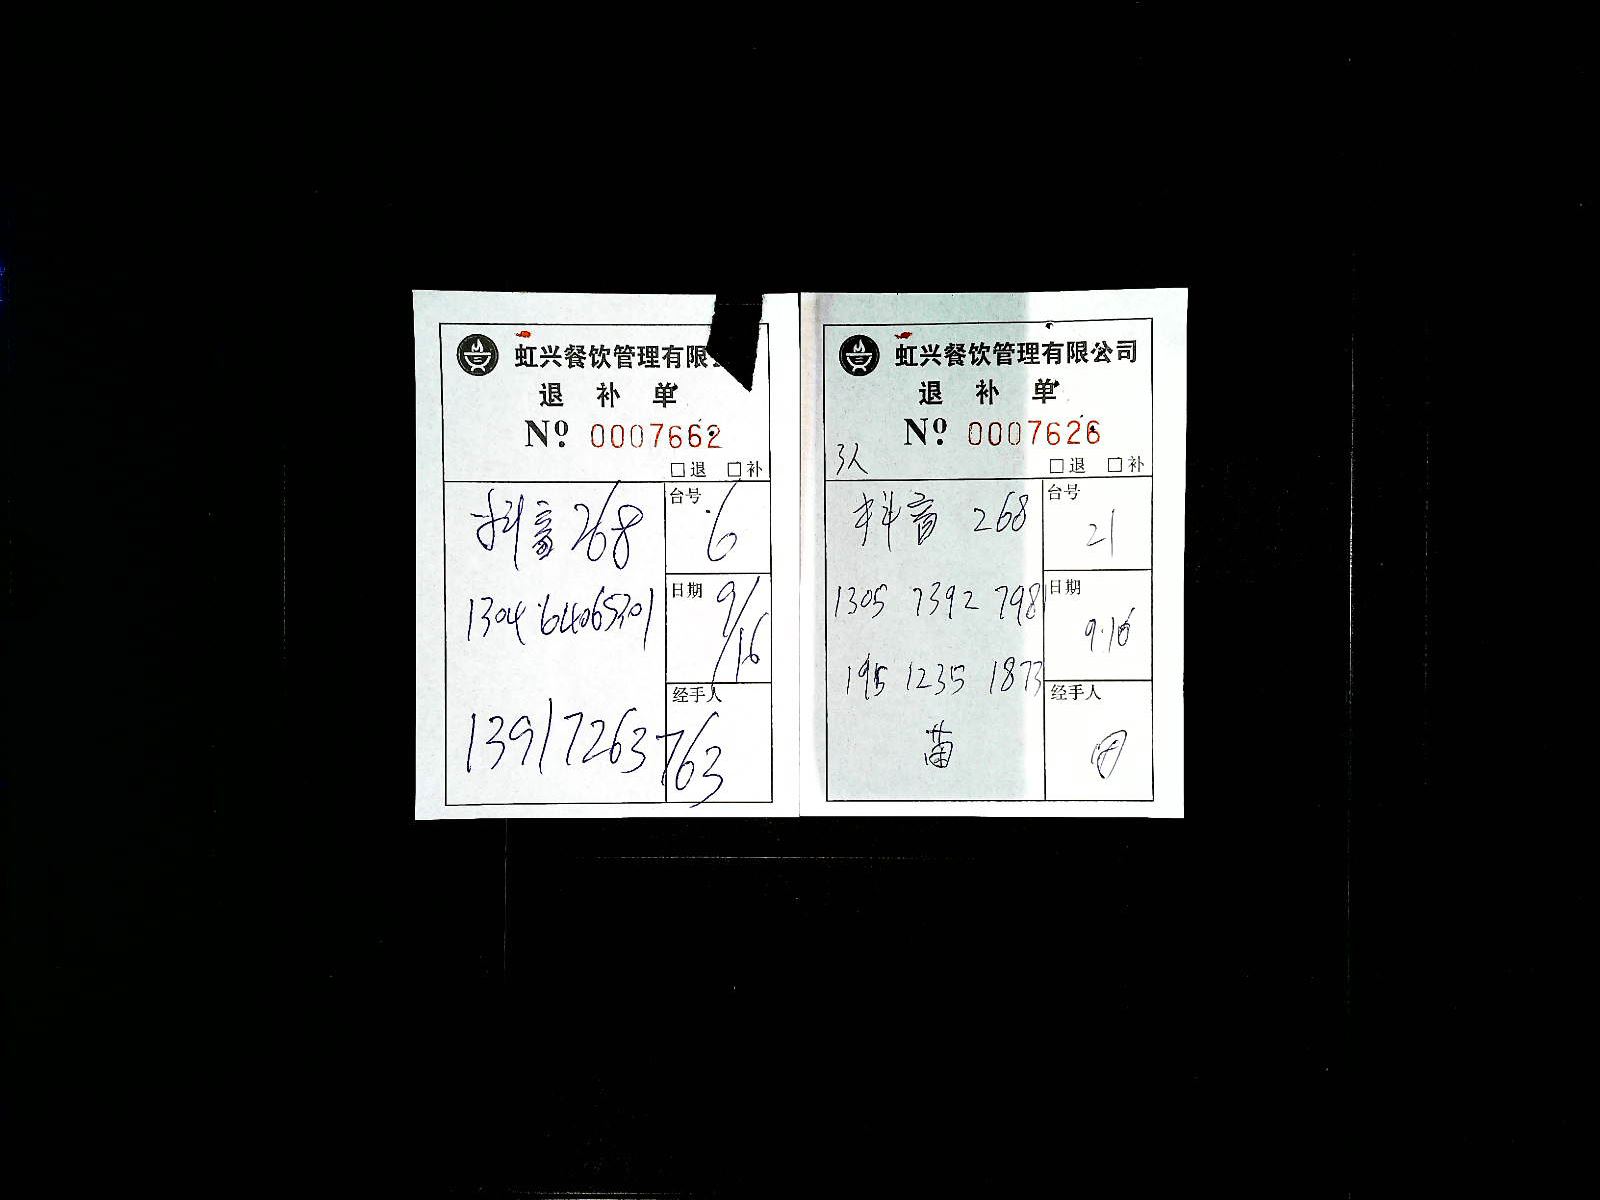 虹兴餐饮管理有限
退 补 单
Nº 0007662
□退 □补
抖音 268
台号 6
1304 64065301
日期 9/16
经手人
13917263763
虹兴餐饮管理有限公司
退 补 单
Nº 0007626
3人
□退 □补
抖音 268
台号 21
1305 7392 798
日期 9.16
195 1235 1873
经手人
苗